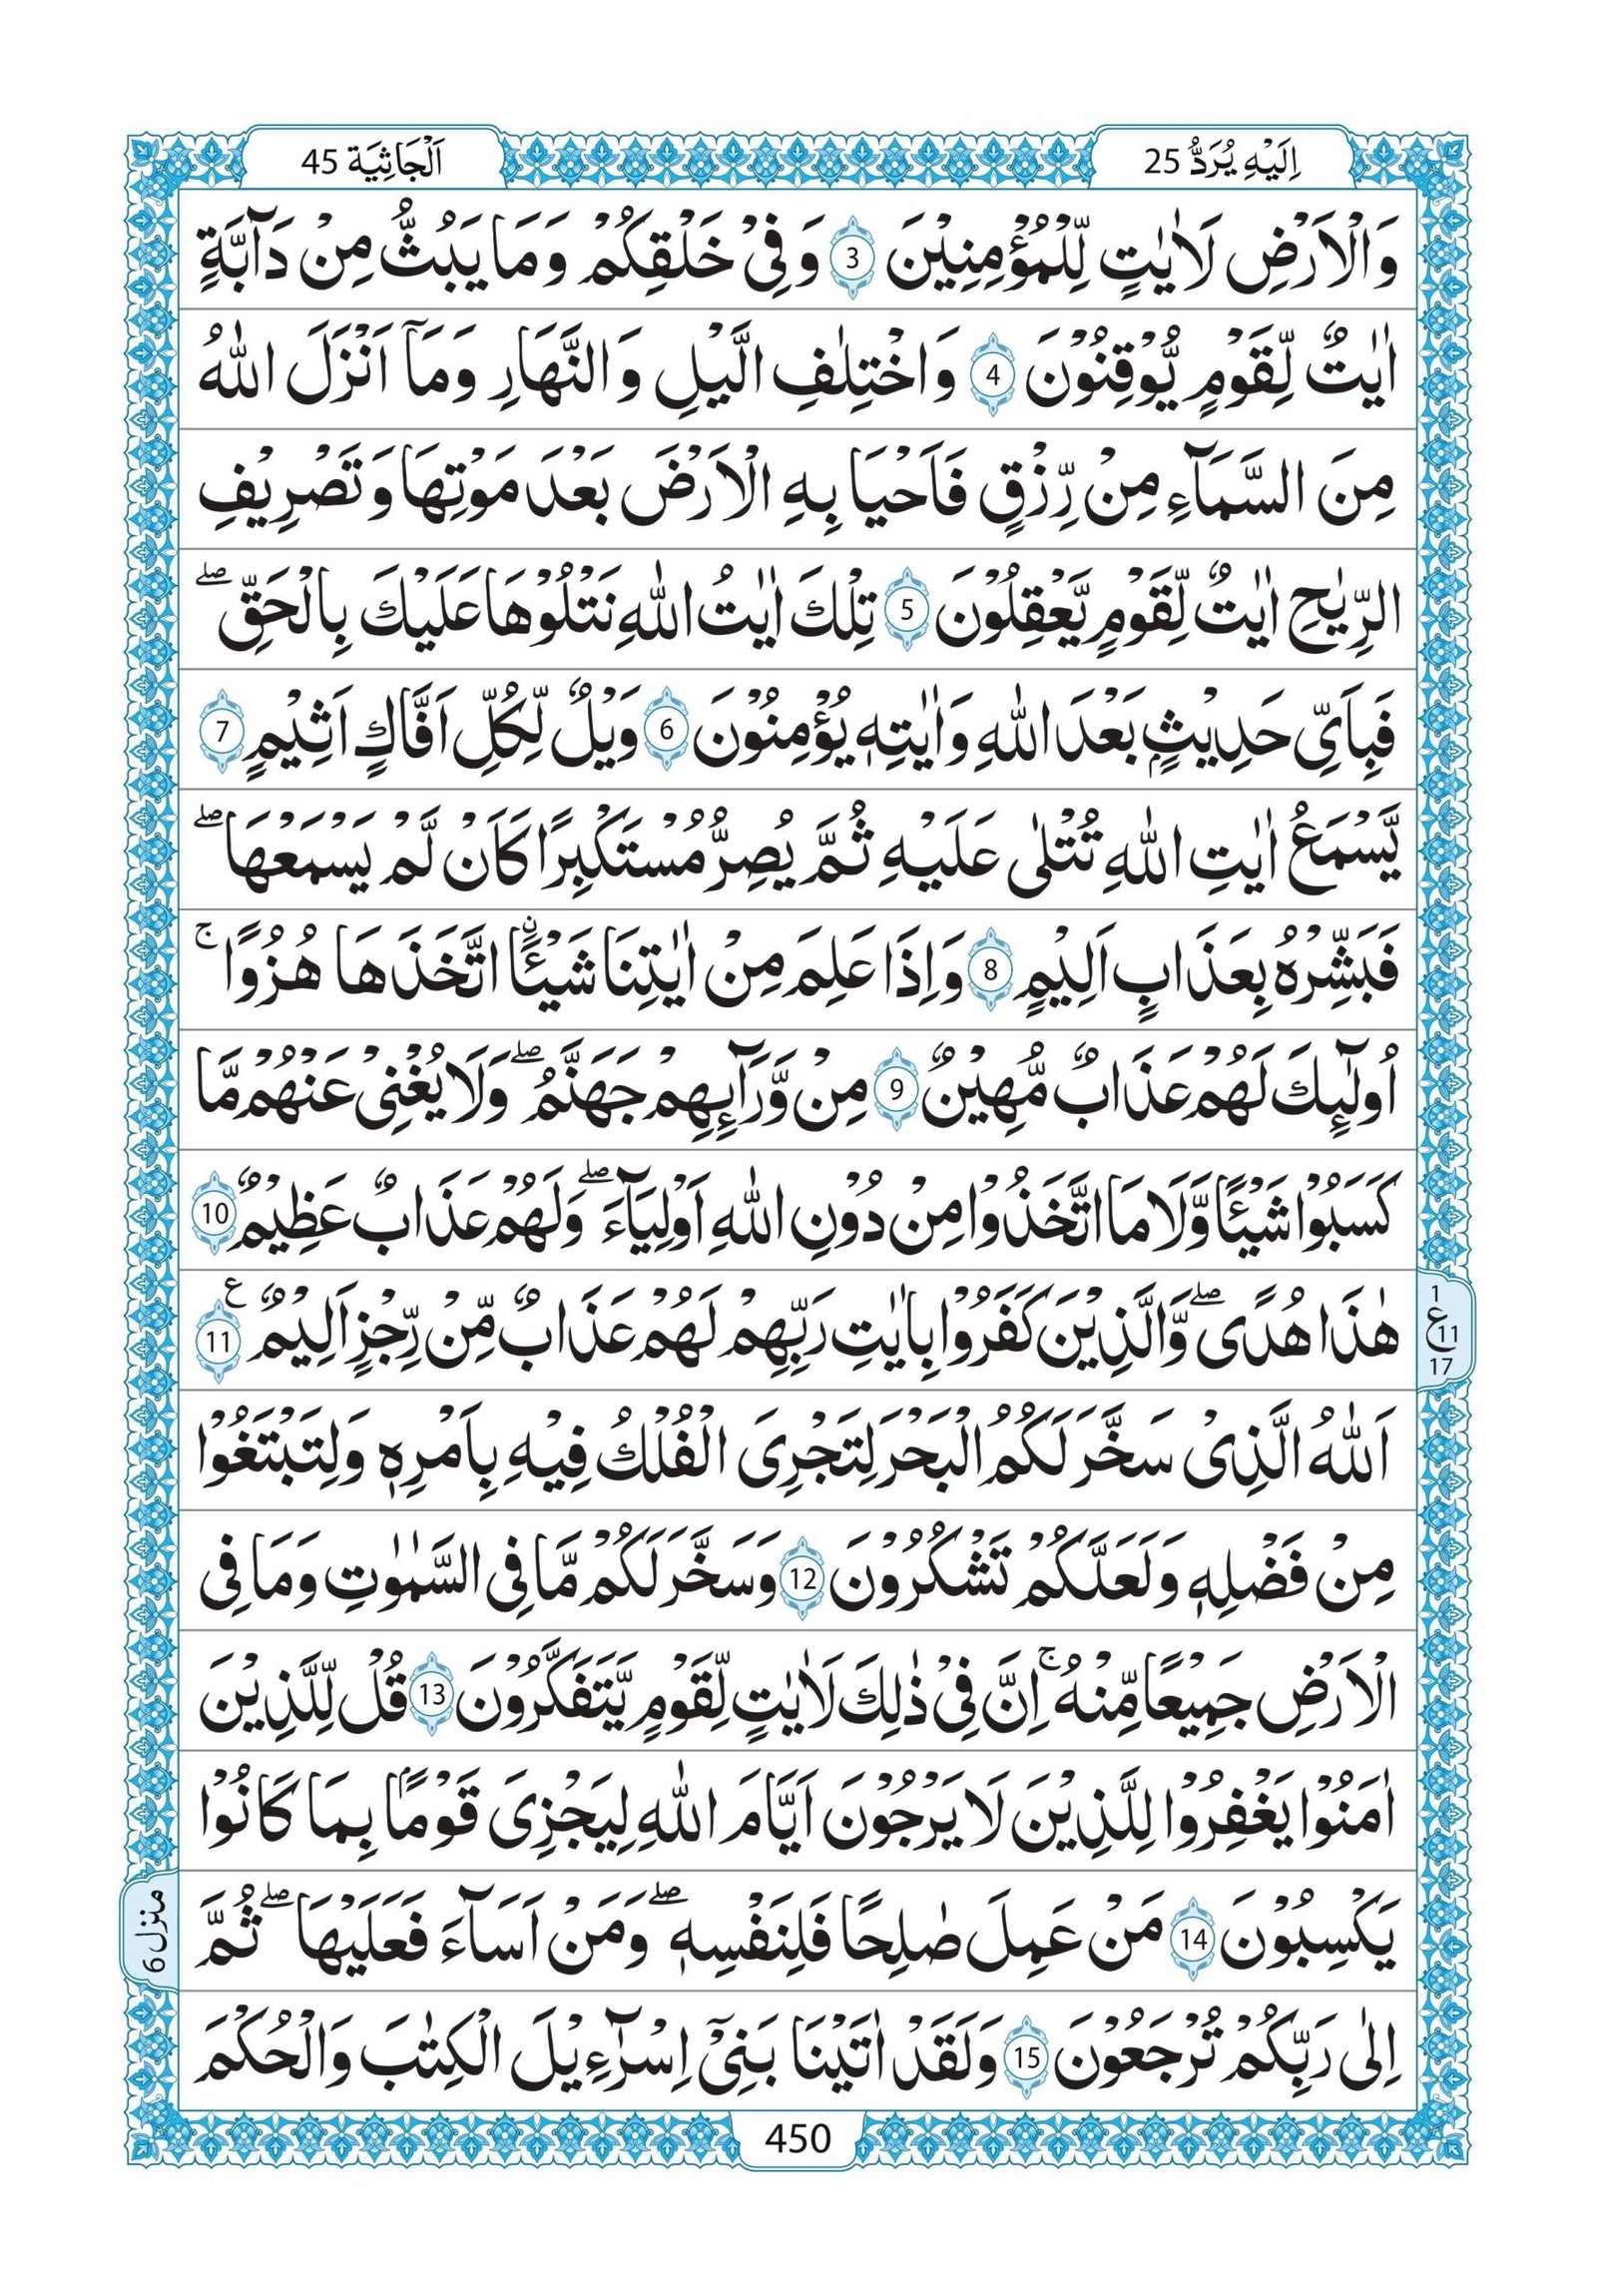 اِلَيْهِ يُرَدُّ 25
اَلْجَاثِيَة 45
وَالْاَرْضِ لَاٰيٰتٍ لِّلْمُؤْمِنِيْنَ 3 وَفِىْ خَلْقِكُمْ وَمَا يَبُثُّ مِنْ دَآبَّةٍ
اٰيٰتٌ لِّقَوْمٍ يُّوْقِنُوْنَ 4 وَاخْتِلٰفِ الَّيْلِ وَالنَّهَارِ وَمَاۤ اَنْزَلَ اللّٰهُ
مِنَ السَّمَآءِ مِنْ رِّزْقٍ فَاَحْيَا بِهِ الْاَرْضَ بَعْدَ مَوْتِهَا وَتَصْرِيْفِ
الرِّيٰحِ اٰيٰتٌ لِّقَوْمٍ يَّعْقِلُوْنَ 5 تِلْكَ اٰيٰتُ اللّٰهِ نَتْلُوْهَا عَلَيْكَ بِالْحَقِّ ۖ
فَبِاَىِّ حَدِيْثٍۭ بَعْدَ اللّٰهِ وَاٰيٰتِهٖ يُؤْمِنُوْنَ 6 وَيْلٌ لِّكُلِّ اَفَّاكٍ اَثِيْمٍ 7
يَّسْمَعُ اٰيٰتِ اللّٰهِ تُتْلٰى عَلَيْهِ ثُمَّ يُصِرُّ مُسْتَكْبِرًا كَاَنْ لَّمْ يَسْمَعْهَا ۖ
فَبَشِّرْهُ بِعَذَابٍ اَلِيْمٍ 8 وَاِذَا عَلِمَ مِنْ اٰيٰتِنَا شَيْـًٔا ۨاتَّخَذَهَا هُزُوًا ۚ
اُولٰٓئِكَ لَهُمْ عَذَابٌ مُّهِيْنٌ 9 مِنْ وَّرَآئِهِمْ جَهَنَّمُ ۖ وَلَا يُغْنِىْ عَنْهُمْ مَّا
كَسَبُوْا شَيْـًٔا وَّلَا مَا اتَّخَذُوْا مِنْ دُوْنِ اللّٰهِ اَوْلِيَآءَ ۖ وَلَهُمْ عَذَابٌ عَظِيْمٌ 10
هٰذَا هُدًى ۖ وَّالَّذِيْنَ كَفَرُوْا بِاٰيٰتِ رَبِّهِمْ لَهُمْ عَذَابٌ مِّنْ رِّجْزٍ اَلِيْمٌ 11 ع
1
ع 11
17
اَللّٰهُ الَّذِىْ سَخَّرَ لَكُمُ الْبَحْرَ لِتَجْرِىَ الْفُلْكُ فِيْهِ بِاَمْرِهٖ وَلِتَبْتَغُوْا
مِنْ فَضْلِهٖ وَلَعَلَّكُمْ تَشْكُرُوْنَ 12 وَسَخَّرَ لَكُمْ مَّا فِى السَّمٰوٰتِ وَمَا فِى
الْاَرْضِ جَمِيْعًا مِّنْهُ ۚ اِنَّ فِىْ ذٰلِكَ لَاٰيٰتٍ لِّقَوْمٍ يَّتَفَكَّرُوْنَ 13 قُلْ لِّلَّذِيْنَ
اٰمَنُوْا يَغْفِرُوْا لِلَّذِيْنَ لَا يَرْجُوْنَ اَيَّامَ اللّٰهِ لِيَجْزِىَ قَوْمًۢا بِمَا كَانُوْا
يَكْسِبُوْنَ 14 مَنْ عَمِلَ صٰلِحًا فَلِنَفْسِهٖ ۖ وَمَنْ اَسَآءَ فَعَلَيْهَا ۖ ثُمَّ
منزل 6
اِلٰى رَبِّكُمْ تُرْجَعُوْنَ 15 وَلَقَدْ اٰتَيْنَا بَنِىْۤ اِسْرَآءِيْلَ الْكِتٰبَ وَالْحُكْمَ
450